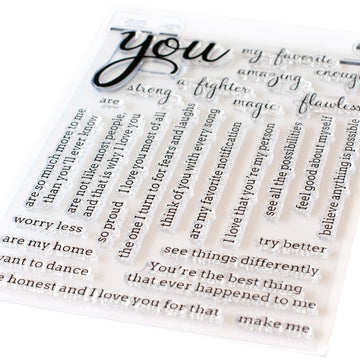 you
my favorite
amazing
enoug
strong
a fighter
are
magic
flawless
are so much more to me
than you'll ever know
are not like most people,
and that is why I love you
so proud
I love you most of all
the one I turn to for fears and laughs
think of you with every song
are my favorite notification
I love that you're my person
see all the possibilities
feel good about myself
believe anything is possi
worry less
are my home
want to dance
e honest and I love you for that
try better
see things differently
You're the best thing
that ever happened to me
make me